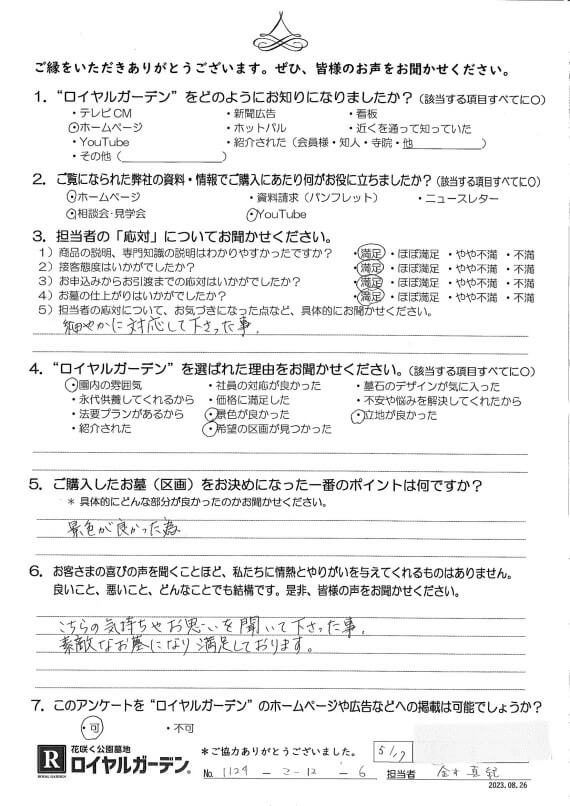 ご縁をいただきありがとうございます。ぜひ、皆様のお声をお聞かせください。
1. “ロイヤルガーデン”をどのようにお知りになりましたか？(該当する項目すべてに○)
・テレビCM ・新聞広告 ・看板
・ホームページ ・ホットパル ・近くを通って知っていた
・YouTube ・紹介された（会員様・知人・寺院・他＿＿＿＿＿＿）
・その他（＿＿＿＿＿＿＿＿）
2. ご覧になられた弊社の資料・情報でご購入にあたり何がお役に立ちましたか？(該当する項目すべてに○)
・ホームページ ・資料請求（パンフレット） ・ニュースレター
・相談会・見学会 ・YouTube
3. 担当者の「応対」についてお聞かせください。
1）商品の説明、専門知識の説明はわかりやすかったですか？ ・満足 ・ほぼ満足 ・やや不満 ・不満
2）接客態度はいかがでしたか？ ・満足 ・ほぼ満足 ・やや不満 ・不満
3）お申込みからお引渡までの応対はいかがでしたか？ ・満足 ・ほぼ満足 ・やや不満 ・不満
4）お墓の仕上がりはいかがでしたか？ ・満足 ・ほぼ満足 ・やや不満 ・不満
5）担当者の応対について、お気づきになった点など、具体的にお聞かせください。
細やかに対応して下さった事。
4. “ロイヤルガーデン”を選ばれた理由をお聞かせください。(該当する項目すべてに○)
・園内の雰囲気 ・社員の対応が良かった ・墓石のデザインが気に入った
・永代供養してくれるから ・価格に満足した ・不安や悩みを解決してくれたから
・法要プランがあるから ・景色が良かった ・立地が良かった
・紹介された ・希望の区画が見つかった
5. ご購入したお墓（区画）をお決めになった一番のポイントは何ですか？
＊ 具体的にどんな部分が良かったのかお聞かせください。
景色が良かった為
6. お客さまの喜びの声を聞くことほど、私たちに情熱とやりがいを与えてくれるものはありません。
良いこと、悪いこと、どんなことでも結構です。是非、皆様の声をお聞かせください。
こちらの気持ちやお思いを聞いて下さった事。
素敵なお墓になり満足しております。
7. このアンケートを“ロイヤルガーデン”のホームページや広告などへの掲載は可能でしょうか？
・可 ・不可
R
ROYAL GARDEN
花咲く公園墓地
ロイヤルガーデン®
＊ご協力ありがとうございました。
No. 1129 - 2-12 - 6 担当者
2023.08.26